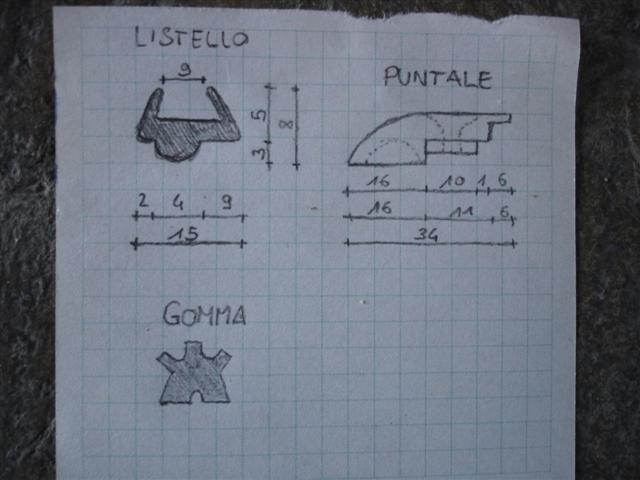 LISTELLO
9
5
8
3
2 4 9
15
PUNTALE
16 10 1 6
16 11 6
34
GOMMA